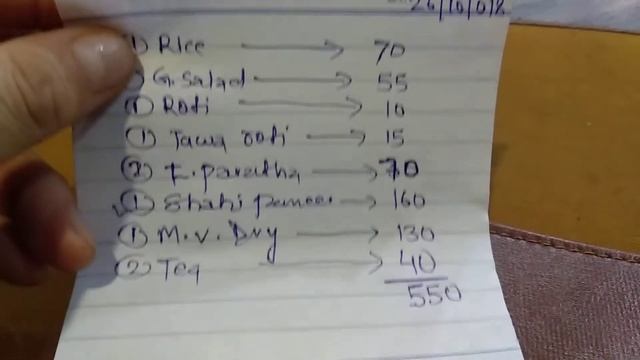 26/10/018
① Rice → 70
G. Salad → 55
① Roti → 10
① Tawa roti → 15
② L. paratha → 70
① Shahi paneer → 160
① M.V. Dry → 130
② Tea → 40
550